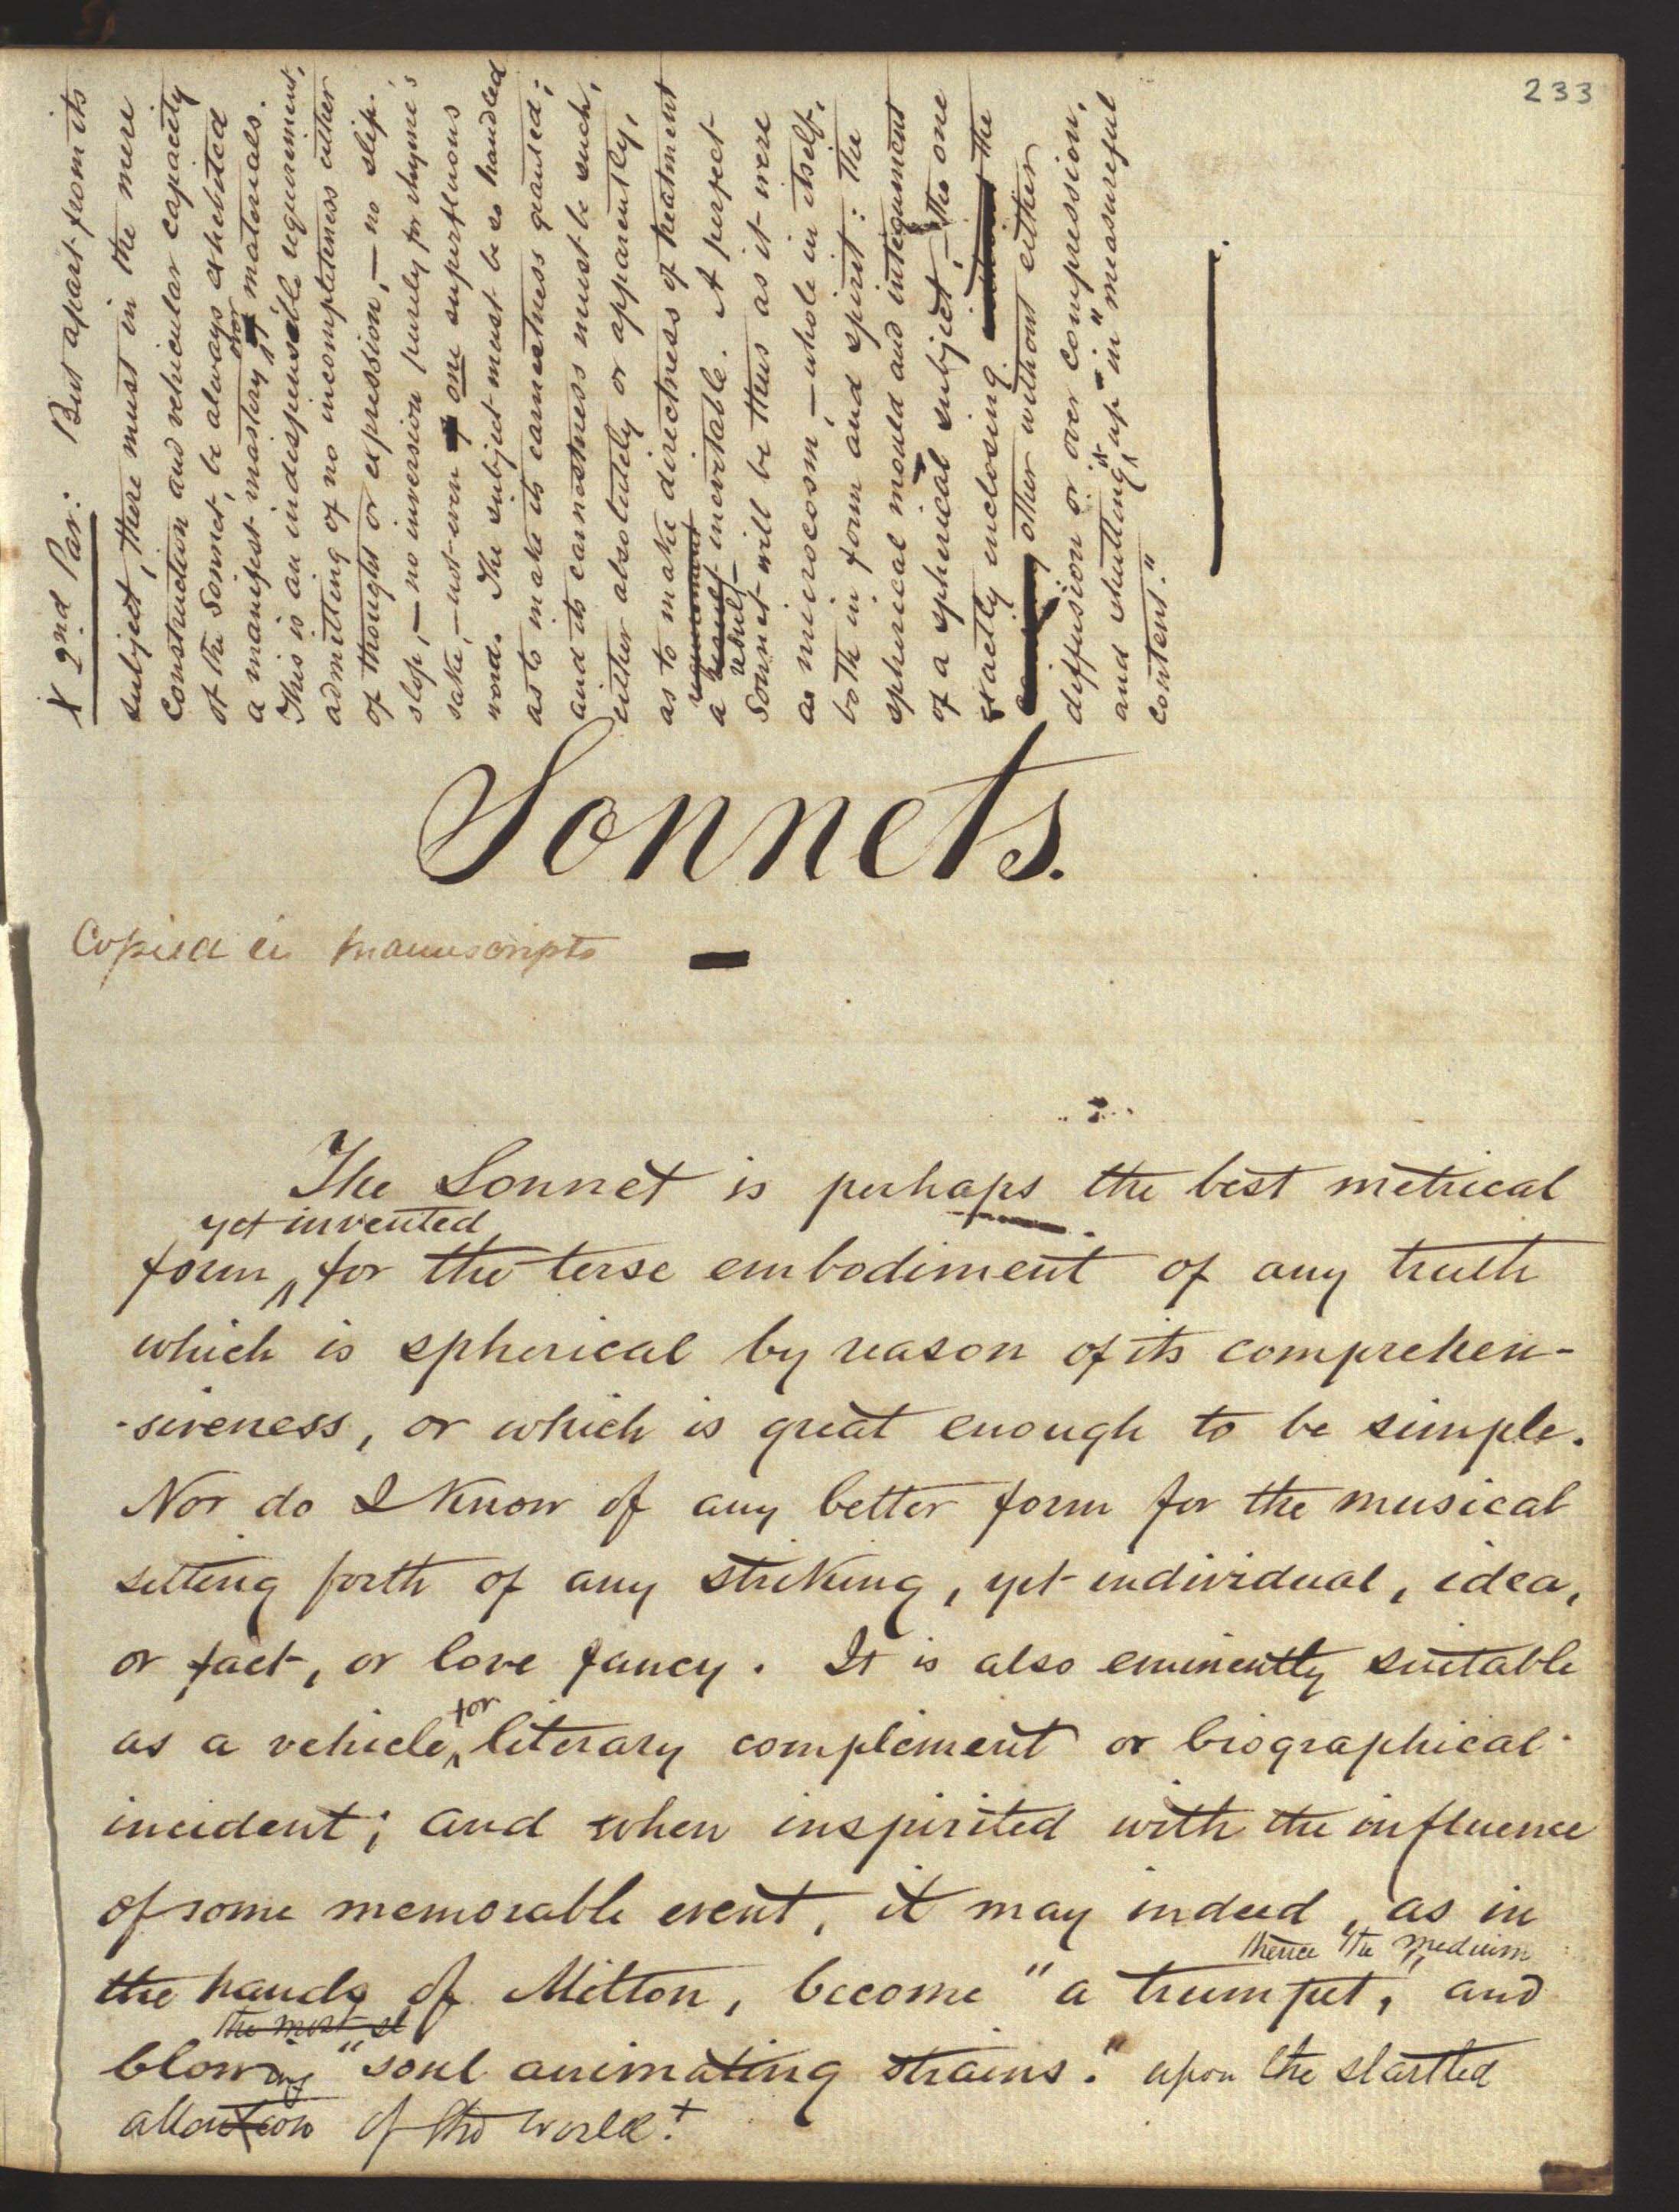 233
X 2nd Par: But apart from its
subject, there must in the mere
construction and vehicular capacity
of the Sonnet, be always exhibited
a manifest mastery over materials.
This is an indispensable requirement,
admitting of no incompleteness either
of thought or expression, — no slip.
slop, — no inversion purely for rhyme's
sake, — not even one superfluous
word. The subject must be so handled
as to make its earnestness quansed;
and its earnestness must be such,
either absolutely or apparently,
as to make directness of treatment
requirement
a result inevitable. A perfect
result
Sonnet will be thus as it were
a microcosm, — whole in itself,
both in form and spirit: the
spherical mould and integument
of a spherical subject, — the one
exactly enclosing the
other without either
diffusion or over compression,
and shutting it up "in measureful
content."
Sonnets.
Copied in manuscripts —
The Sonnet is perhaps the best metrical
yet invented
form, for the terse embodiment of any truth
which is spherical by reason of its comprehen-
-siveness, or which is great enough to be simple.
Nor do I know of any better form for the musical
setting forth of any striking, yet individual, idea,
or fact, or love fancy. It is also eminently suitable
for
as a vehicle, literary compliment or biographical
incident; and when inspirited with the influence
of some memorable event, it may indeed, as in
thence the medium
the hands of Milton, become "a trumpet," and
the most st
blowing "soul animating strains." upon the startled
attention of the world.+